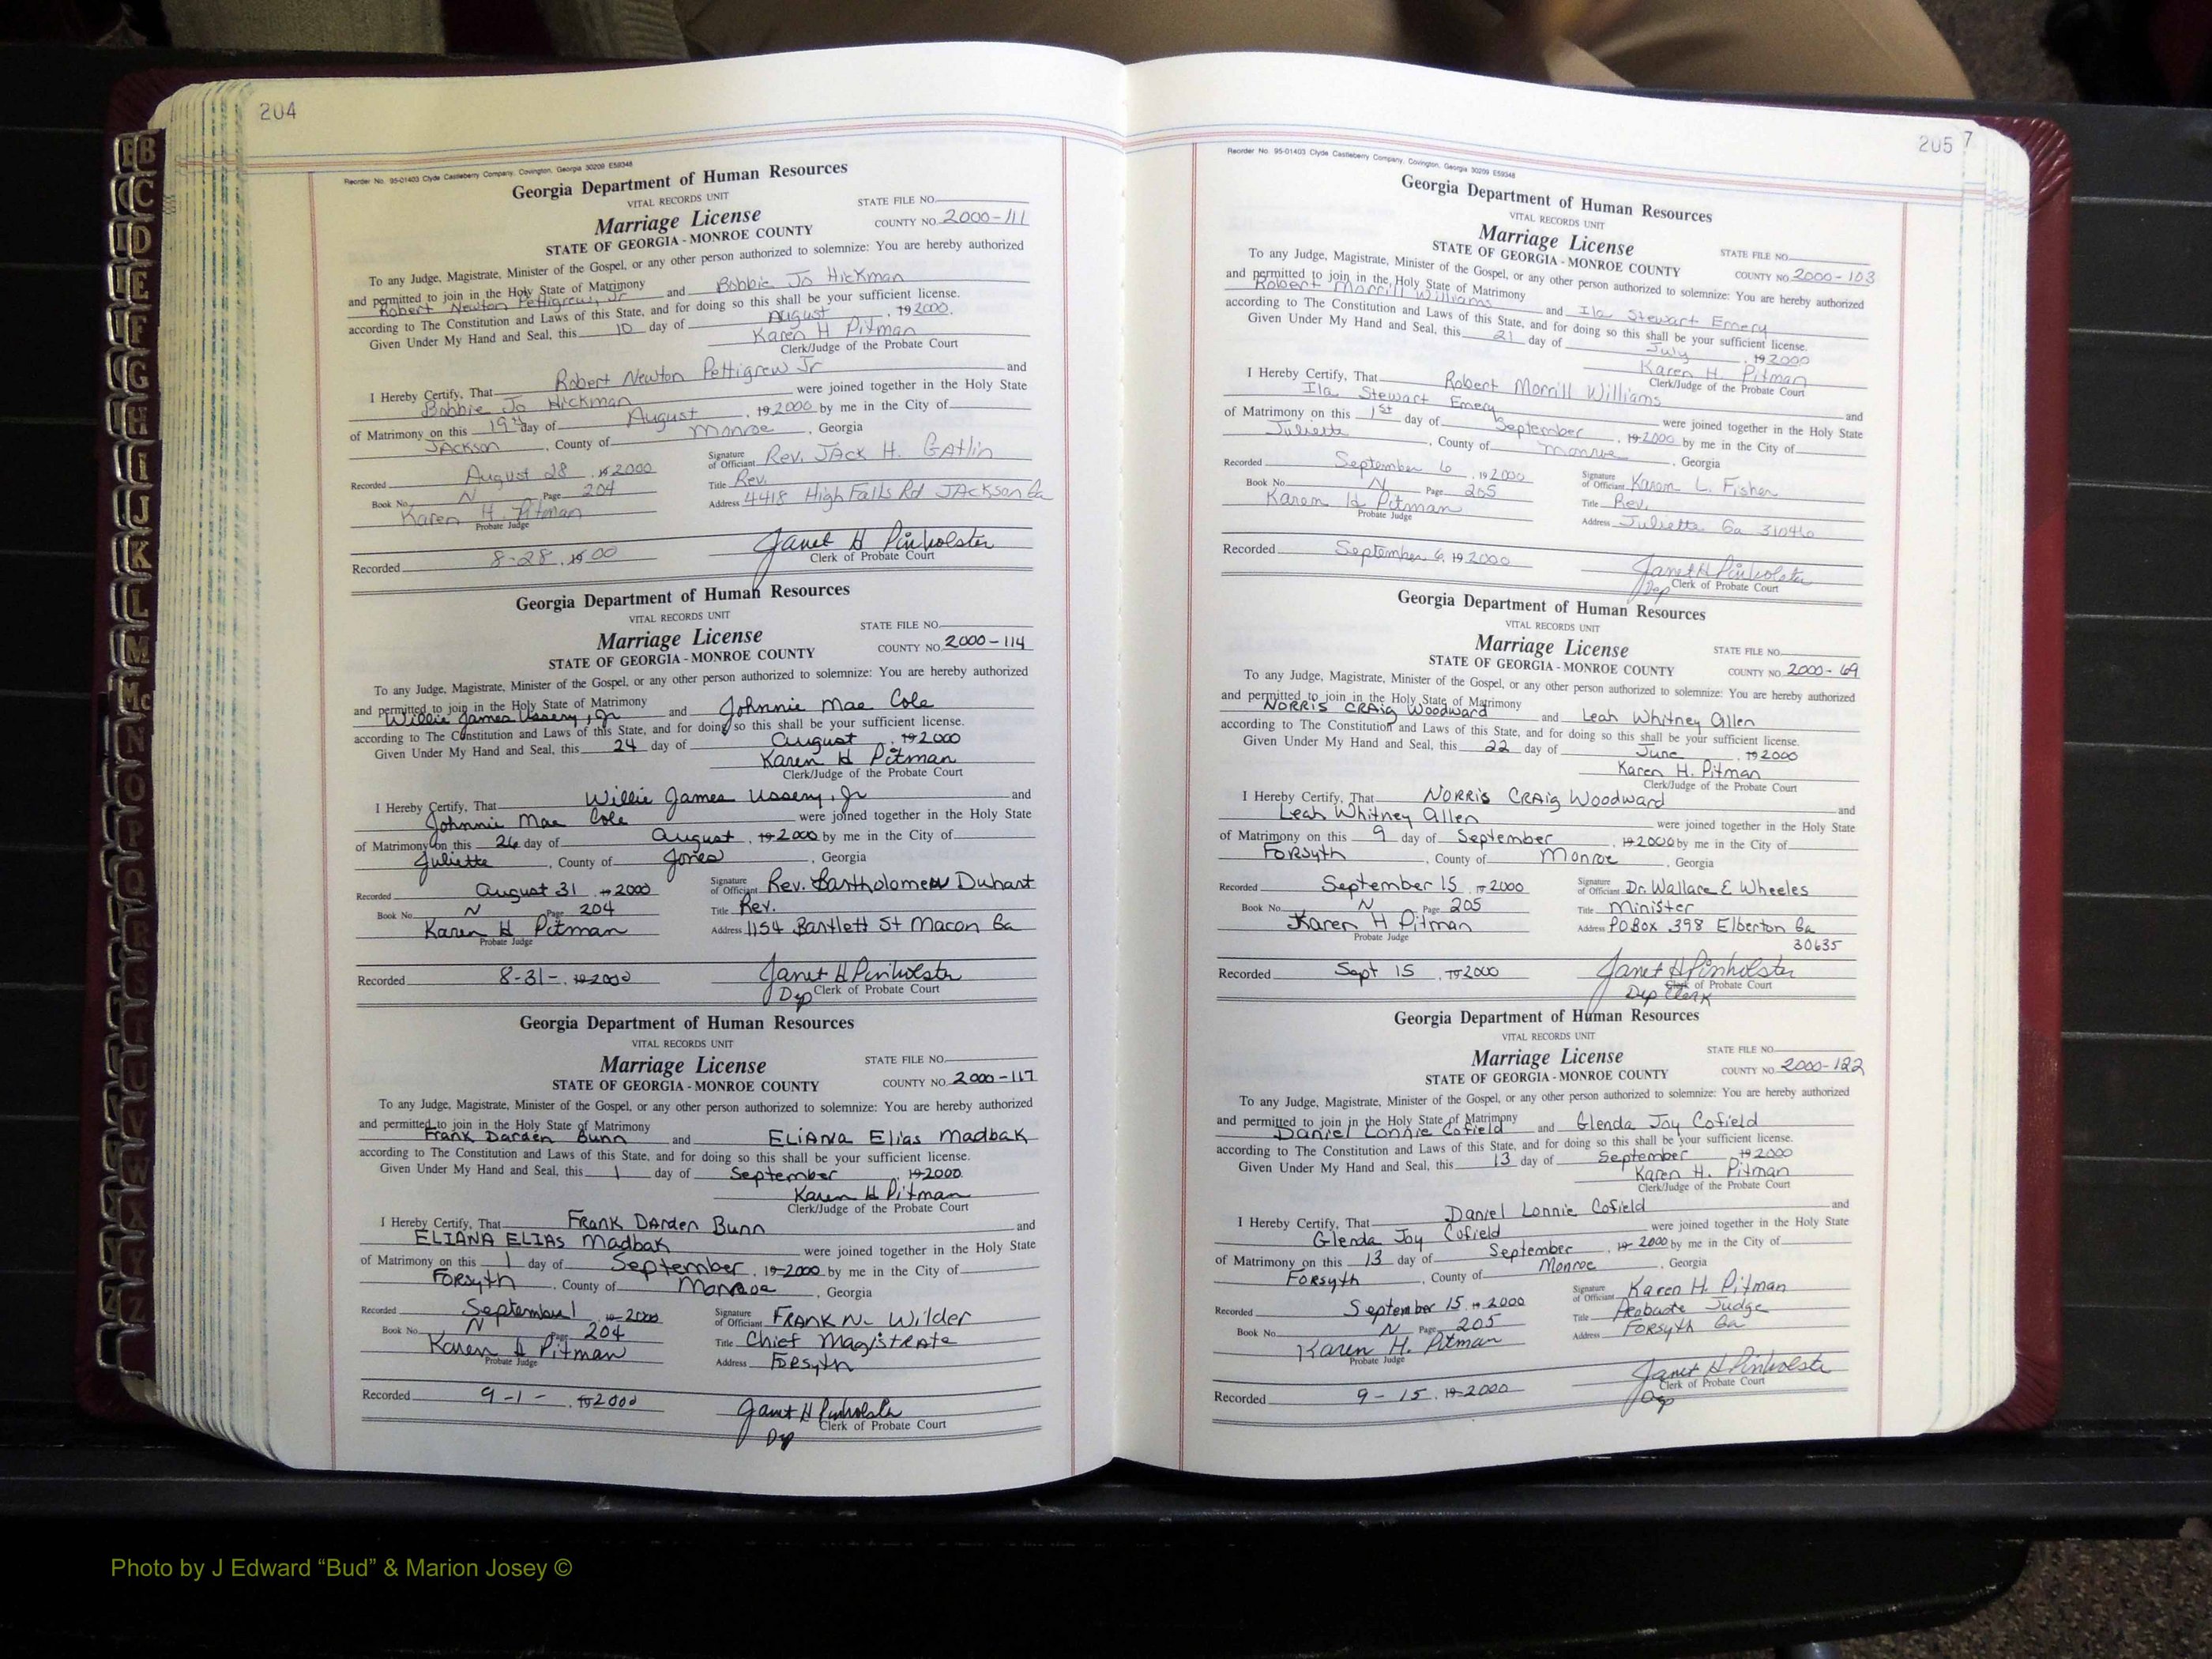 204
Reorder No. 95-01403 Clyde Castleberry Company, Covington, Georgia 30209 E59348
Georgia Department of Human Resources
VITAL RECORDS UNIT
STATE FILE NO.
Marriage License
COUNTY NO. 2000-111
STATE OF GEORGIA - MONROE COUNTY
To any Judge, Magistrate, Minister of the Gospel, or any other person authorized to solemnize: You are hereby authorized
and permitted to join in the Holy State of Matrimony
Robert Newton Pettigrew, Jr and Bobbie Jo Hickman
according to The Constitution and Laws of this State, and for doing so this shall be your sufficient license.
Given Under My Hand and Seal, this 10 day of August, 19 2000.
Karen H Pitman
Clerk/Judge of the Probate Court
I Hereby Certify, That Robert Newton Pettigrew Jr and
Bobbie Jo Hickman were joined together in the Holy State
of Matrimony on this 19th day of August, 19 2000 by me in the City of
Jackson, County of Monroe, Georgia
Recorded August 28, 19 2000
Signature of Officiant Rev. Jack H. Gatlin
Book No. N Page 204
Title Rev.
Karen H. Pitman
Probate Judge
Address 4418 High Falls Rd Jackson Ga
Recorded 8-28, 19 00
Janet H Pinholster
Clerk of Probate Court
Georgia Department of Human Resources
VITAL RECORDS UNIT
STATE FILE NO.
Marriage License
COUNTY NO. 2000-114
STATE OF GEORGIA - MONROE COUNTY
To any Judge, Magistrate, Minister of the Gospel, or any other person authorized to solemnize: You are hereby authorized
and permitted to join in the Holy State of Matrimony
Willie James Ussery, Jr and Johnnie Mae Cole
according to The Constitution and Laws of this State, and for doing so this shall be your sufficient license.
Given Under My Hand and Seal, this 24 day of August, 19 2000
Karen H Pitman
Clerk/Judge of the Probate Court
I Hereby Certify, That Willie James Ussery, Jr and
Johnnie Mae Cole were joined together in the Holy State
of Matrimony on this 26 day of August, 19 2000 by me in the City of
Juliette, County of Jones, Georgia
Recorded August 31, 19 2000
Signature of Officiant Rev. Bartholomew Duhart
Book No. N Page 204
Title Rev.
Karen H Pitman
Probate Judge
Address 1154 Bartlett St Macon Ga
Recorded 8-31-, 19 2000
Janet H Pinholster
Dep Clerk of Probate Court
Georgia Department of Human Resources
VITAL RECORDS UNIT
STATE FILE NO.
Marriage License
COUNTY NO. 2000-117
STATE OF GEORGIA - MONROE COUNTY
To any Judge, Magistrate, Minister of the Gospel, or any other person authorized to solemnize: You are hereby authorized
and permitted to join in the Holy State of Matrimony
Frank Darden Bunn and Eliana Elias Madbak
according to The Constitution and Laws of this State, and for doing so this shall be your sufficient license.
Given Under My Hand and Seal, this 1 day of September, 19 2000
Karen H Pitman
Clerk/Judge of the Probate Court
I Hereby Certify, That Frank Darden Bunn and
ELIANA ELIAS Madbak were joined together in the Holy State
of Matrimony on this 1 day of September, 19 2000 by me in the City of
Forsyth, County of Monroe, Georgia
Recorded September 1, 19 2000
Signature of Officiant Frank N. Wilder
Book No. N Page 204
Title Chief Magistrate
Karen H Pitman
Probate Judge
Address Forsyth
Recorded 9-1-, 19 2000
Janet H Pinholster
Dep Clerk of Probate Court
205 7
Reorder No. 95-01403 Clyde Castleberry Company, Covington, Georgia 30209 E59348
Georgia Department of Human Resources
VITAL RECORDS UNIT
STATE FILE NO.
Marriage License
COUNTY NO. 2000-103
STATE OF GEORGIA - MONROE COUNTY
To any Judge, Magistrate, Minister of the Gospel, or any other person authorized to solemnize: You are hereby authorized
and permitted to join in the Holy State of Matrimony
Robert Morrill Williams and Ila Stewart Emery
according to The Constitution and Laws of this State, and for doing so this shall be your sufficient license.
Given Under My Hand and Seal, this 21 day of July, 19 2000
Karen H. Pitman
Clerk/Judge of the Probate Court
I Hereby Certify, That Robert Morrill Williams and
Ila Stewart Emery were joined together in the Holy State
of Matrimony on this 1st day of September, 19 2000 by me in the City of
Juliette, County of Monroe, Georgia
Recorded September 6, 19 2000
Signature of Officiant Karen L. Fisher
Book No. N Page 205
Title Rev.
Karen H Pitman
Probate Judge
Address Juliette Ga 31046
Recorded September 6, 19 2000
Janet H Pinholster
Dep Clerk of Probate Court
Georgia Department of Human Resources
VITAL RECORDS UNIT
STATE FILE NO.
Marriage License
COUNTY NO. 2000-69
STATE OF GEORGIA - MONROE COUNTY
To any Judge, Magistrate, Minister of the Gospel, or any other person authorized to solemnize: You are hereby authorized
and permitted to join in the Holy State of Matrimony
Norris Craig Woodward and Leah Whitney Allen
according to The Constitution and Laws of this State, and for doing so this shall be your sufficient license.
Given Under My Hand and Seal, this 22 day of June, 19 2000
Karen H. Pitman
Clerk/Judge of the Probate Court
I Hereby Certify, That Norris Craig Woodward and
Leah Whitney Allen were joined together in the Holy State
of Matrimony on this 9 day of September, 19 2000 by me in the City of
Forsyth, County of Monroe, Georgia
Recorded September 15, 19 2000
Signature of Officiant Dr. Wallace E Wheeles
Book No. N Page 205
Title Minister
Karen H Pitman
Probate Judge
Address PO Box 398 Elberton Ga
30635
Recorded Sept 15, 19 2000
Janet H Pinholster
Clerk of Probate Court
Dep Clerk
Georgia Department of Human Resources
VITAL RECORDS UNIT
STATE FILE NO.
Marriage License
COUNTY NO. 2000-122
STATE OF GEORGIA - MONROE COUNTY
To any Judge, Magistrate, Minister of the Gospel, or any other person authorized to solemnize: You are hereby authorized
and permitted to join in the Holy State of Matrimony
Daniel Lonnie Cofield and Glenda Joy Cofield
according to The Constitution and Laws of this State, and for doing so this shall be your sufficient license.
Given Under My Hand and Seal, this 13 day of September, 19 2000
Karen H. Pitman
Clerk/Judge of the Probate Court
I Hereby Certify, That Daniel Lonnie Cofield and
Glenda Joy Cofield were joined together in the Holy State
of Matrimony on this 13 day of September, 19 2000 by me in the City of
Forsyth, County of Monroe, Georgia
Recorded September 15, 19 2000
Signature of Officiant Karen H. Pitman
Book No. N Page 205
Title Probate Judge
Karen H. Pitman
Probate Judge
Address Forsyth Ga
Recorded 9-15, 19 2000
Janet H Pinholster
Dep Clerk of Probate Court
B
C
D
E
F
G
H
I
J
K
L
M
Mc
N
O
P
Q
R
T
U
V
W
Y
Z
Photo by J Edward “Bud” & Marion Josey ©